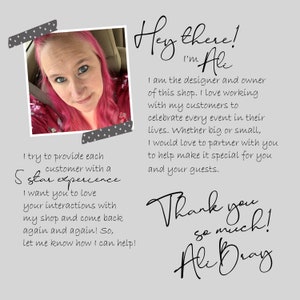 Hey there!
I'm
Ali
I am the designer and owner
of this shop. I love working
with my customers to
celebrate every event in their
lives. Whether big or small,
I would love to partner with you
to help make it special for you
and your guests.
I try to provide each
customer with a
5 star experience
I want you to love
your interactions with
my shop and come back
again and again! So,
let me know how I can help!
Thank you
so much!
Ali Bray